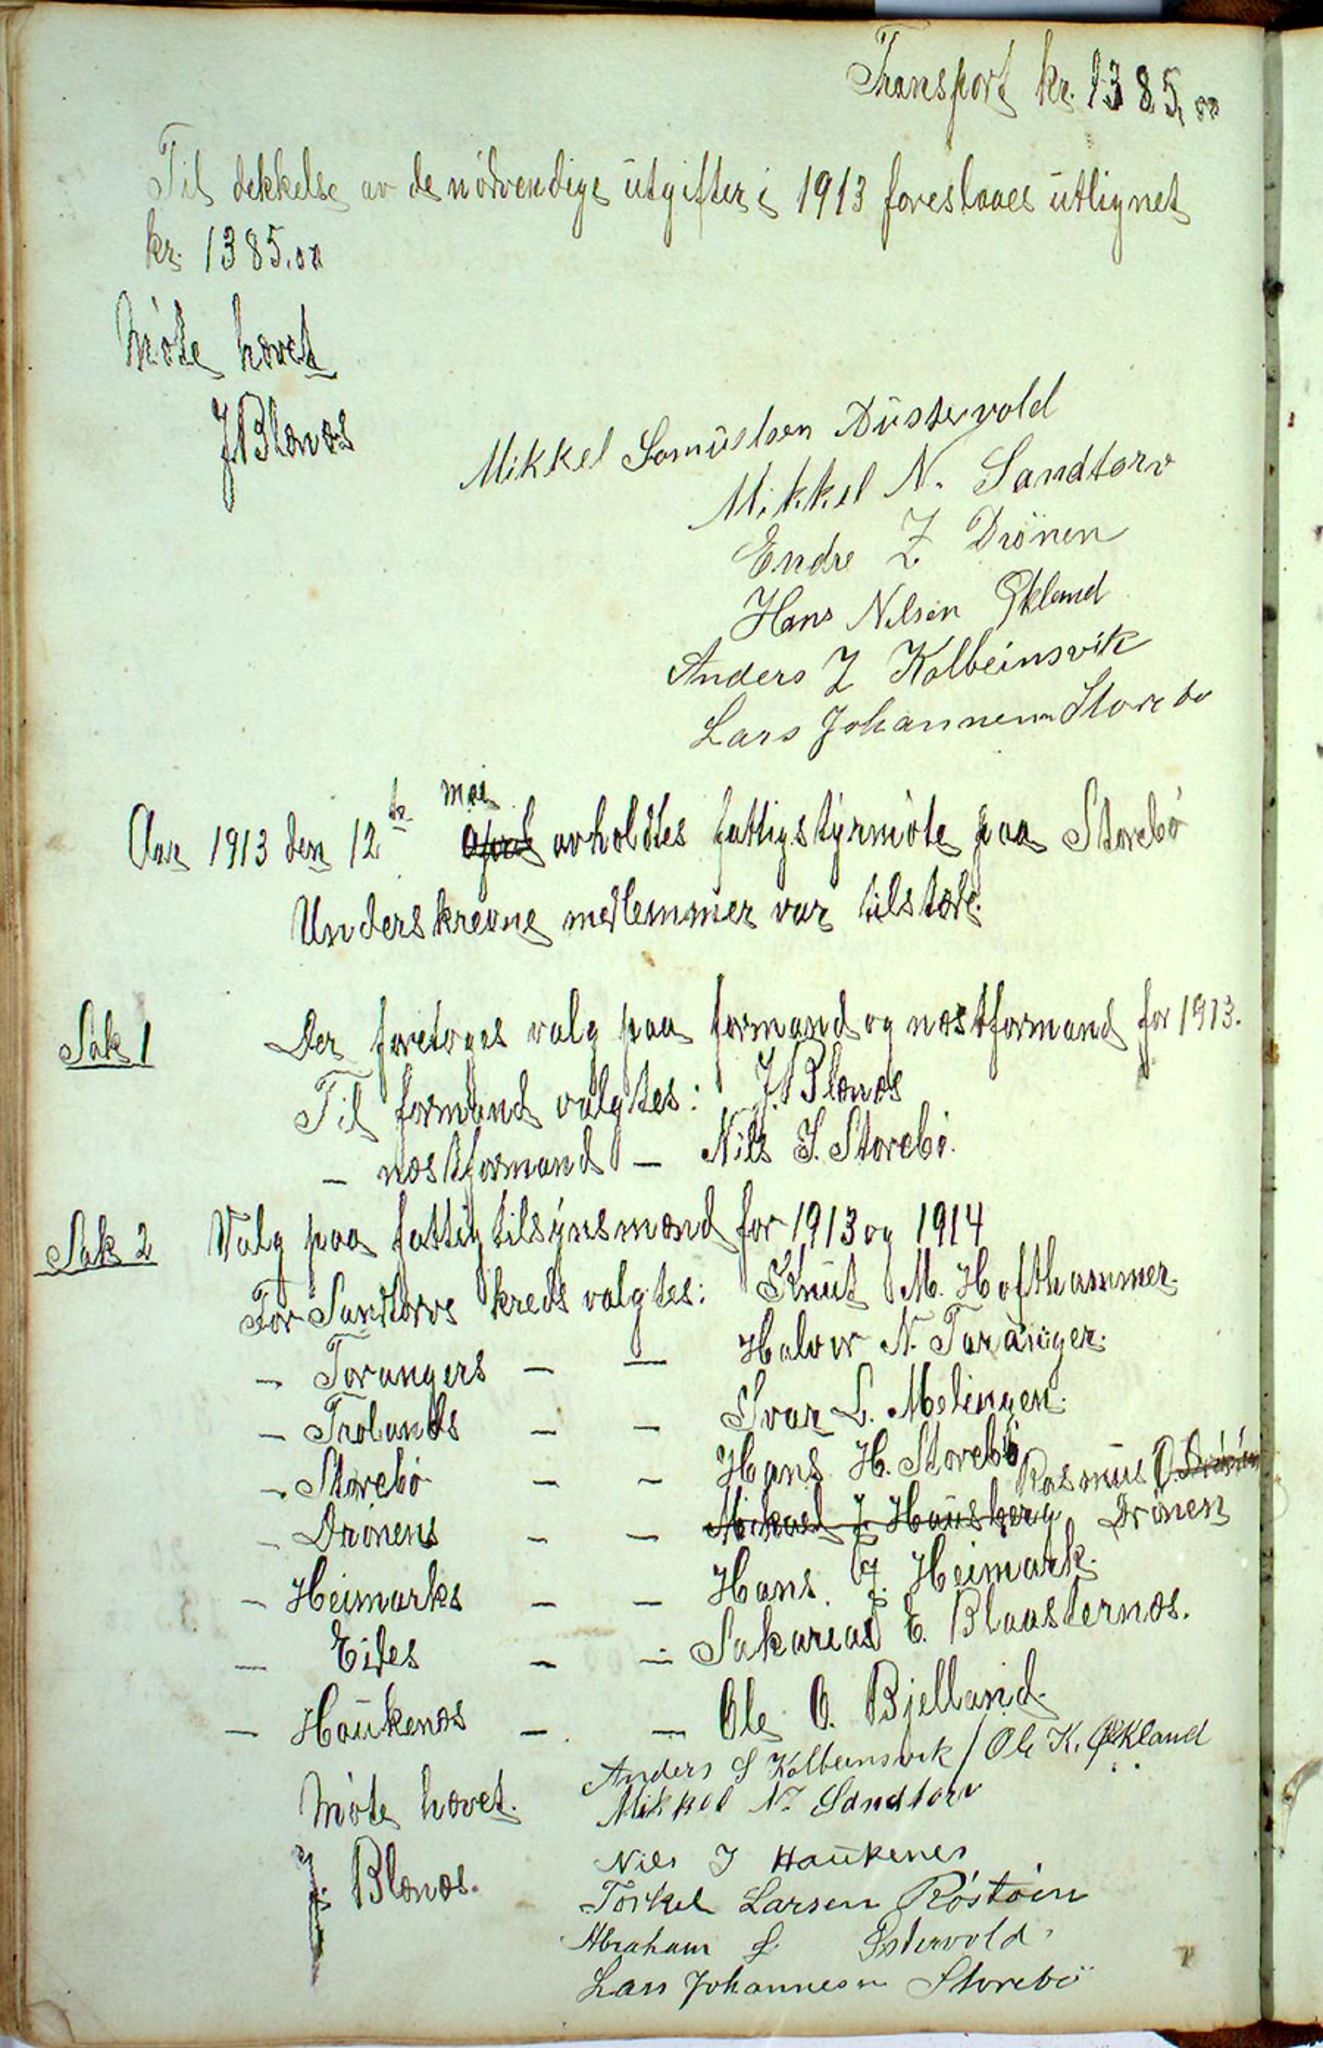 Transport kr. 1385,00
Til dekkelse av de nödvendige utgifter i 1913 foreslaaes utlignet
kr. 1385.00
Möte hævet
J. Blænæs
Mikkel Samuelsen Austevold
Mikkel N. Sandtorv
Endre Z Drönen
Hans Nilsen Økland
Anders Z Kolbeinsvik
Lars Johannesen Storebö
Aar 1913 den 12te mai april avholdtes fattigstyrmöte paa Storebö
Underskrevne medlemmer var tilstæde.
Sak 1 Der foretoges valg paa formand og næstformand for 1913.
Til formand valgtes: J. Blænæs
— næstformand — Nils J. Storebö.
Sak 2 Valg paa fattigtilsynsmænd for 1913 og 1914
For Sandtorvs kreds valgtes: Knut M. Hofthammer.
— Torangers — — Halvor N. Taranger.
— Trolands — — Ivar L. Melingen.
— Storebö — — Hans H. Storebö
Rasmus O. Drönen
— Drönens — — Mikael J. Hausberg Drönen
— Heimarks — — Hans J. Heimark.
— Eides — — Sakarias E. Blaasternæs.
— Haukenæs — — Ole O. Bjelland.
Anders S Kolbeinsvik / Ole K. Økland
Möte hævet. Mikkel N. Sandtorv
Nils J Haukenes
J. Blænæs. Torkel Larsen Röstöen
Abraham S. Østervold
Lars Johannesen Storebö